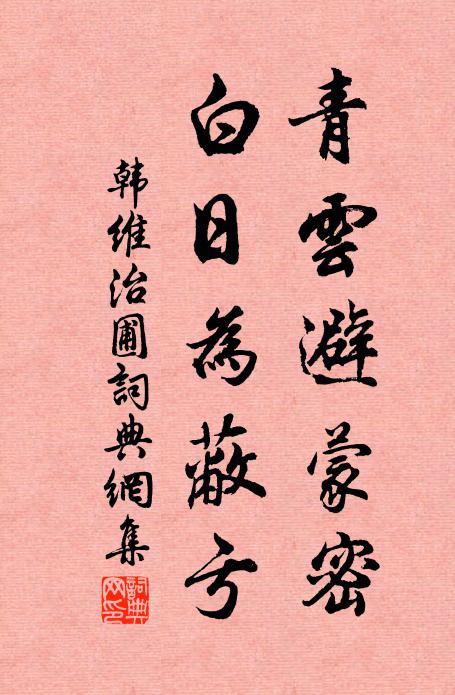 青雲避蒙密
白日為蔽亏
韩維治圃詞典網集
詞典网印